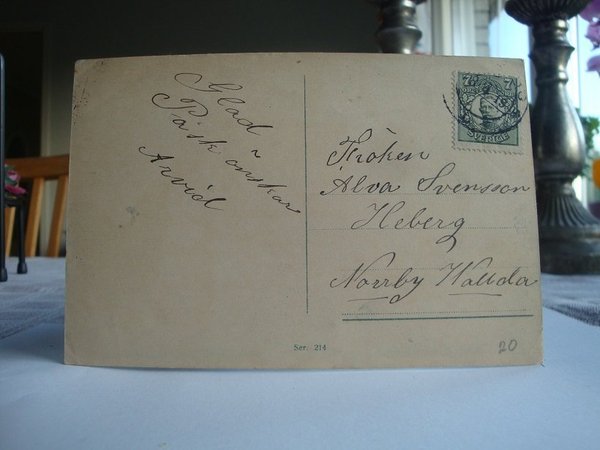 Glad
Påsk önskar
Arvid
Fröken
Alva Svensson
Heberg
Norrby Wallda
7
SVERIGE
Ser. 214
20